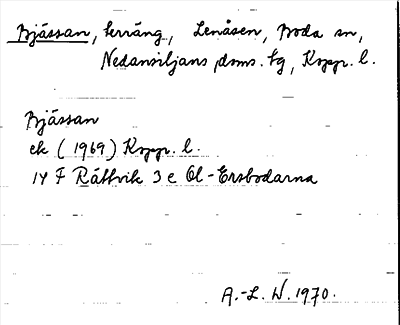 Bjässan, terräng, Lenåsen, Boda sn,
Nedansiljans doms. tg, Kopp. l.
Bjässan
ek (1969) Kopp. l.
14 F Rättvik 3 e Ol-Ersbodarna
A.-L. W. 1970.